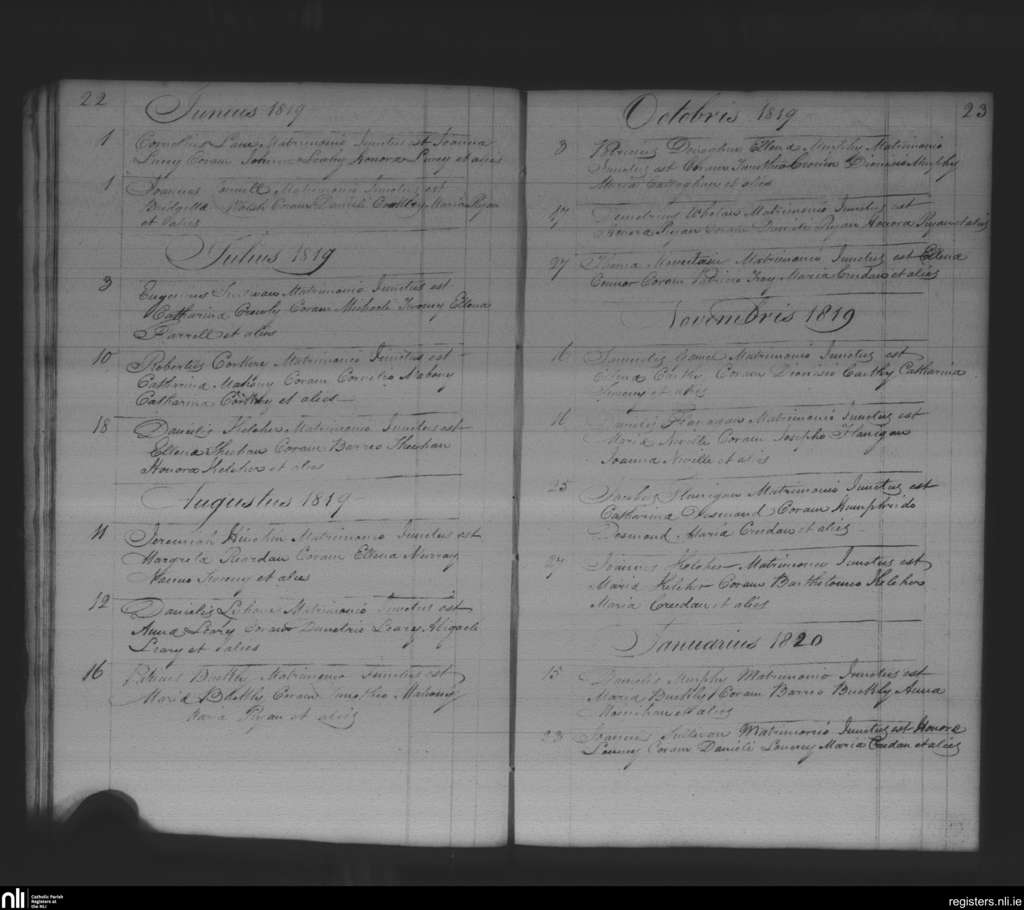 22
Junius 1819
1 Cornelius Lane Matrimonio Junctus est Joanna
Lucey Coram Leahy Honora Lucey et aliis
1 Joannes Matrimonio Junctus est
Bridgetta Walsh Coram Daniele Maria Ryan
et aliis
Julius 1819
3 Eugenius Matrimonio Junctus est
Catharina Crowly Coram Michaele Ellena
Farrell et aliis
10 Robertus Corkere Matrimonio Junctus est
Catharina Mahony Coram Cornelio Mahony
Catharina et aliis
18 Danielis Kelcher Matrimonio Junctus est
Ellena Sheehan Coram Barreo Sheehan
Honora Kelcher et aliis
Augustus 1819
11 Jeremiah Matrimonio Junctus est
Margreta Reardan Coram Ellena Murray
et aliis
12 Danielis Matrimonio Junctus est
Anna Leary Coram Demetrio Leary Abigaele
Leary et aliis
16 Buckly Matrimonio Junctus est
Maria Buckly Coram Timotheo Mahony
Maria Ryan et aliis
23
Octobris 1819
3 Donoghue Ellena Murphy Matrimonio
Junctus est Coram Timotheo Cronin Dionisio Murphy
Maria Callaghan et aliis
17 Demetrius Whelan Matrimonio Junctus est
Honora Ryan Coram Daniele Ryan Honora Ryan et aliis
27 Matrimonio Junctus est Ellena
Connor Coram Patricio Maria Credan et aliis
Novembris 1819
16 Matrimonio Junctus est
Ellena Carthy Coram Dionisio Carthy Catharina
et aliis
16 Flanagan Matrimonio Junctus est
Maria Neville Coram Josepho Flanigan
Joanna Neville et aliis
25 Jacobus Flanigan Matrimonio Junctus est
Catharina Desmond Coram Humphrido
Desmond Maria Credan et aliis
27 Joannes Kelcher Matrimonio Junctus est
Maria Kelcher Coram Bartholomeo Kelcher
Maria Credan et aliis
Januarius 1820
15 Danielis Murphy Matrimonio Junctus est
Maria Buckly Coram Barreo Buckly Anna
et aliis
23 Joannes Sullivan Matrimonio Junctus est Honora
Coram Daniele Maria Credan et aliis
nli
Catholic Parish
Registers at
the NLI
registers.nli.ie